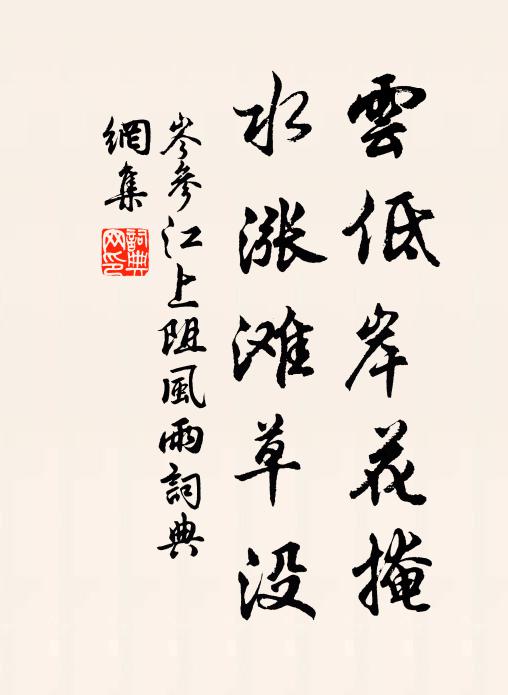 雲低岸花掩
水漲滩草没
岑參江上阻風雨詞典
網集
詞典
网印